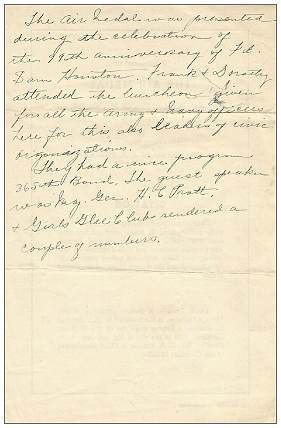 The Air Medal was presented
during the celebration of
the 99th anniversary of Ft.
Sam Houston. Frank & Dorothy
attended the luncheon given
for all the Army & Navy officers
here for this also leaders of civic
organizations.
They had a nice program.
365th Band. The guest speaker
was Brig. Gen. H. C. Pratt.
& Girls Glee Club rendered a
couple of numbers.